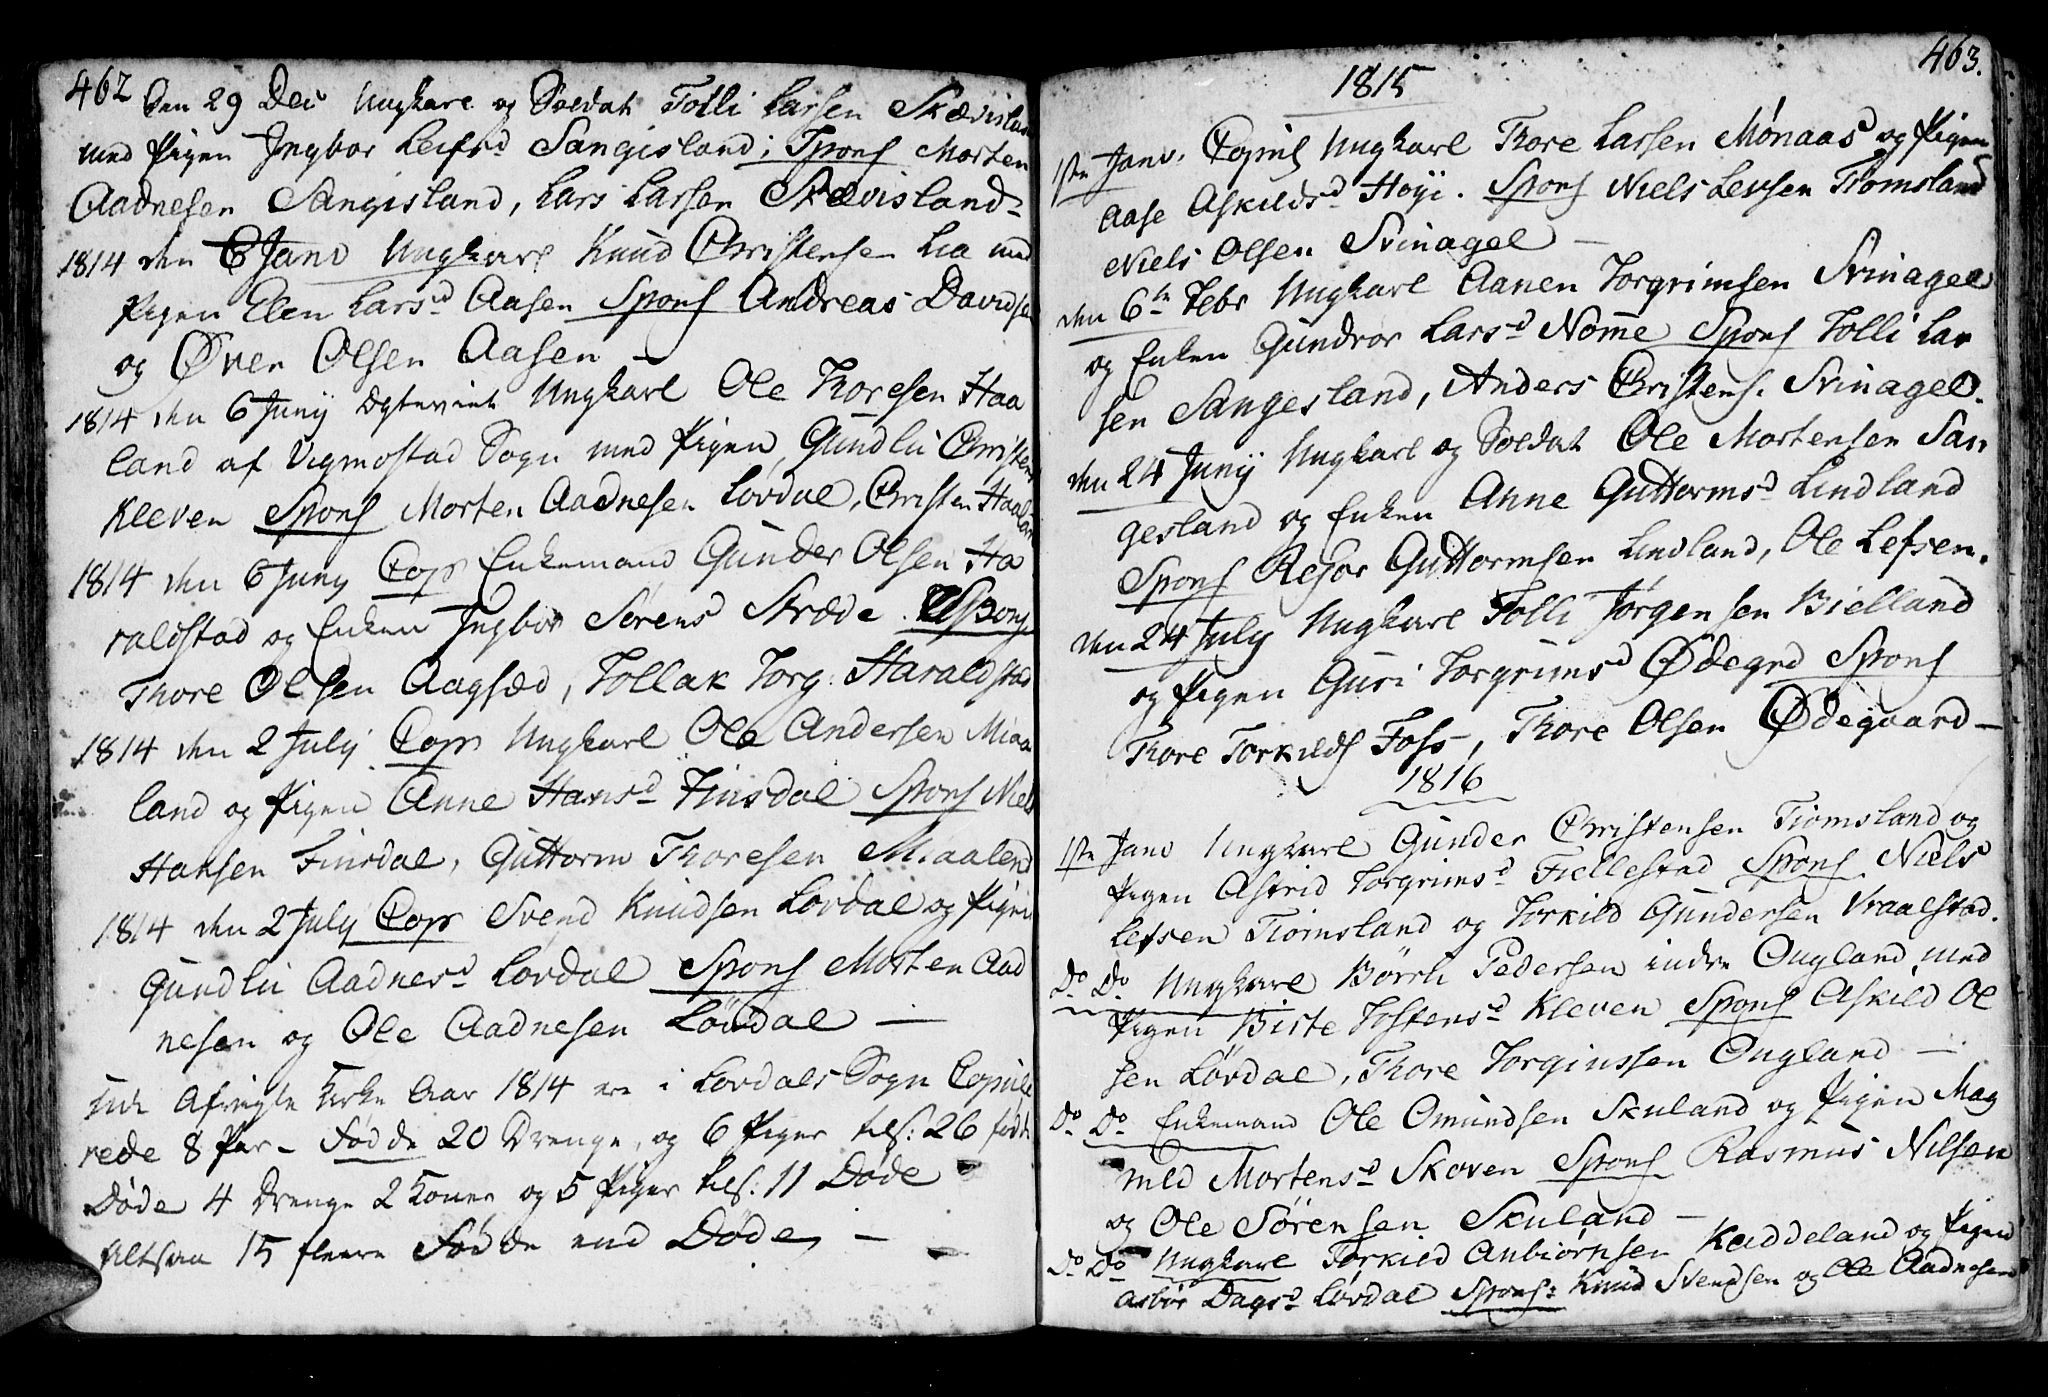 462
Den 29 Dec Ungkarl og Soldat Tolli Larsen Skævisland
med Pigen Ingbor Leifsd Sangisland; Spons Morten
Aadnesen Sangisland, Lars Larsen Skævisland-
1814 den 6 Janv Ungkarl Knud Christense Lia med
Pigen Elen Larsd Aasen Spons Andreas Davidsen
og Øven Olsen Aasen —
1814 den 6 Junij Ægteviet Ungkarl Ole Thoresen Haa
land af Vigmostad Sogn med Pigen Gundlu Christens
Kleven Spons Morten Aadnesen Lovdal, Christen Haaland
1814 den 6 Juny Cop Enkemand Gunder Olsen Ha
raldstad og Enken Ingbor Sorens Stræde. Spons
Thore Olsen Aagsæd, Tollak Torg: Haraldstad
1814 den 2 July Cop Ungkarl Ole Andersen Miaa
land og Pigen Anne Hansd Finsdal Spons Niels
Hansen Finsdal, Guttorm Thoresen Miaaland
1814 den 2 July Cop Svend Knudsen Lovdal og Pigen
Gundlu Aadnesd Lovdal Spons Morten Aad
nesen og Ole Aadnesen Lövdal —
Udi Afvigte Kirke Aar 1814 ere i Lovdals Sogn Copule
rede 8 Par - Fødde 20 Drenge, og 6 Piger tils: 26 fødte
Døde 4 Drenge 2 Koner og 5 Piger tils: 11 Døde
Altsaa 15 fleere Fødde end Døde, —
463.
1815
1ste Janv. Copul Ungkarl Thore Larsen Mønaas og Pigen
Aase Askildsd Høyi. Spons Niels Levsen Tiomsland
Niels Olsen Svinagel —
den 6te Febr Ungkarl Aanen Torgrimsen Svinagel
og Enken Gundvor Larsd Nome Spons Tolli Lar
sen Sangesland, Anders Christens. Svinagel.
den 24 Junij Ungkarl og Soldat Ole Mortensen San
gesland og Enken Anne Guttormsd Lindland
Spons Rejor Guttormsen Lindland, Ole Lefsen.
den 24 July Ungkarl Tolli Jørgensen Bielland
og Pigen Guri Torgrimsd Ødegrd Spons
Thore Torkilds Foss, Thore Olsen Ødegaard —
1816
1ste Janv Ungkarl Gunder Christensen Tiomsland og
Pigen Astrid Torgrimsd Fiellestad Spons Niels
Lefsen Tiomsland og Torkild Gundersen Vraalstad.
Do Do Ungkarl Börru Pedersen indre Øugland med
Pigen Birte Tostensd Kleven Spons Askild Ol
sen Løvdal, Thore Torginssen Øugland —
Do Do Enkemand Ole Omundsen Skuland og Pigen Mag
nild Mortensd Skoven Spons Rasmus Nilsen
og Ole Sørensen Skuland —
Do Do Ungkarl Torkild Anbiørnsen Kaddeland og Pigen
Asbör Dagsd Løvdal Spons: Knud Svendsen og Ole Aadnesen